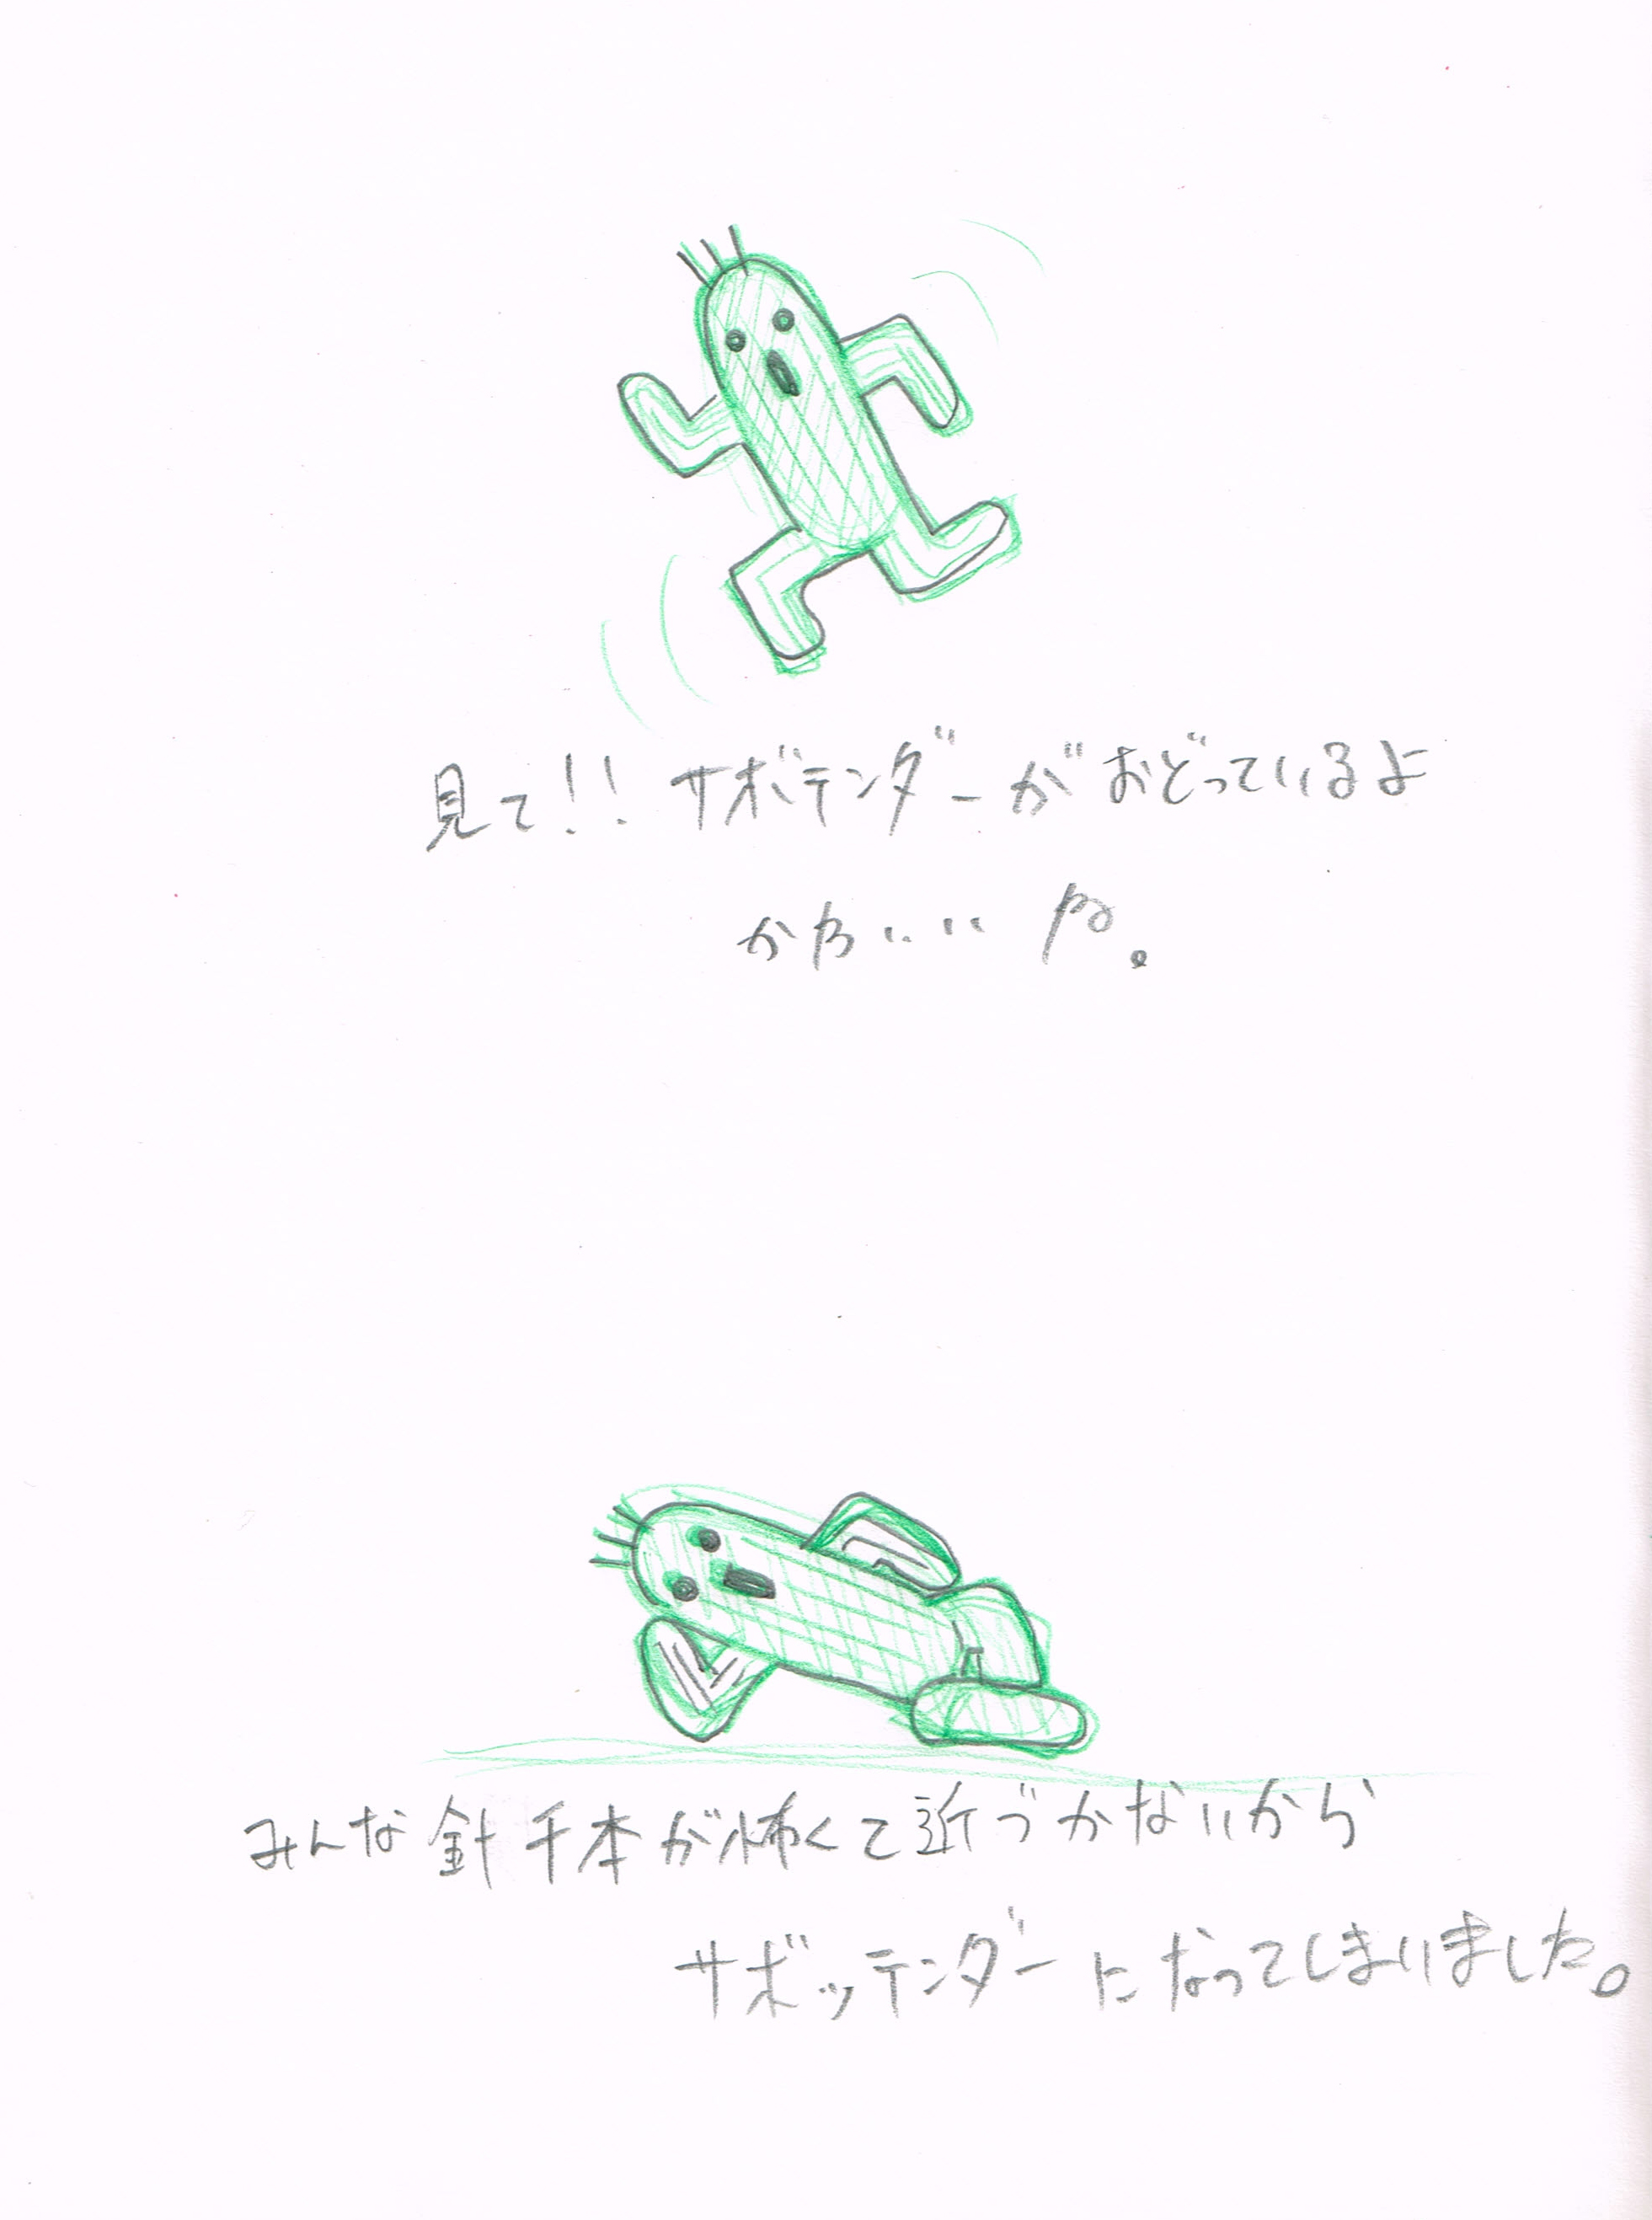 見て!! サボテンダーがおどっているよ
かわいいね。
みんな針千本が怖くて近づかないから
サボッテンダーになってしまいました。